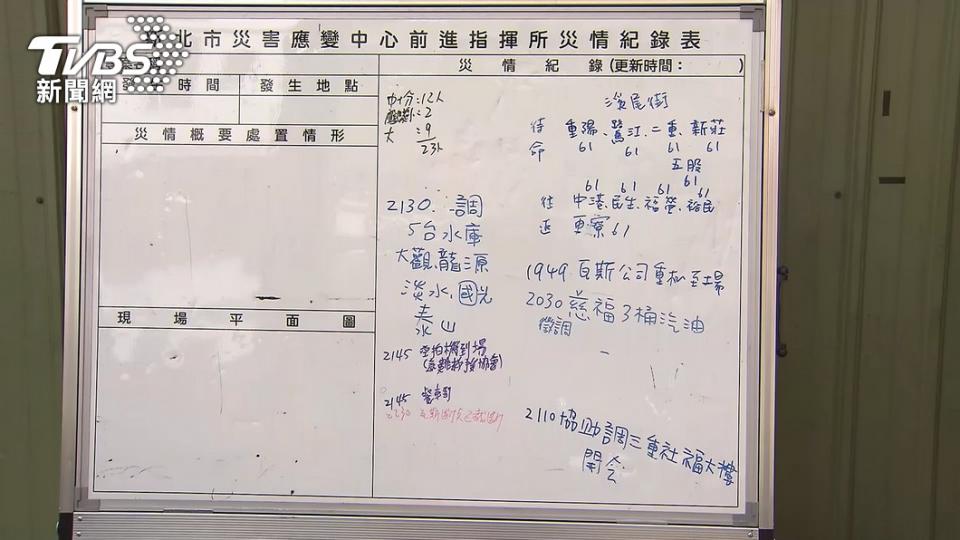 TVBS
新聞網
北市災害應變中心前進指揮所災情紀錄表
時間
發生地點
災情紀錄(更新時間: )
災情概要處置情形
現場平面圖
中十分:12人
:2
大:9
23人
2130. 調
5台水庫
大觀、龍源
淡水、國光
泰山
2145 空拍機到場
2145
2230
溪尾街
待命 重陽、鷺江、二重、新莊
61 61 61 61
五股
61
61 61 61 61
中港、民生、福營、裕民
更寮61
1949 瓦斯公司重機至場
2030 慈福3桶汽油
徵調
2110 協助調三重社福大樓
開會